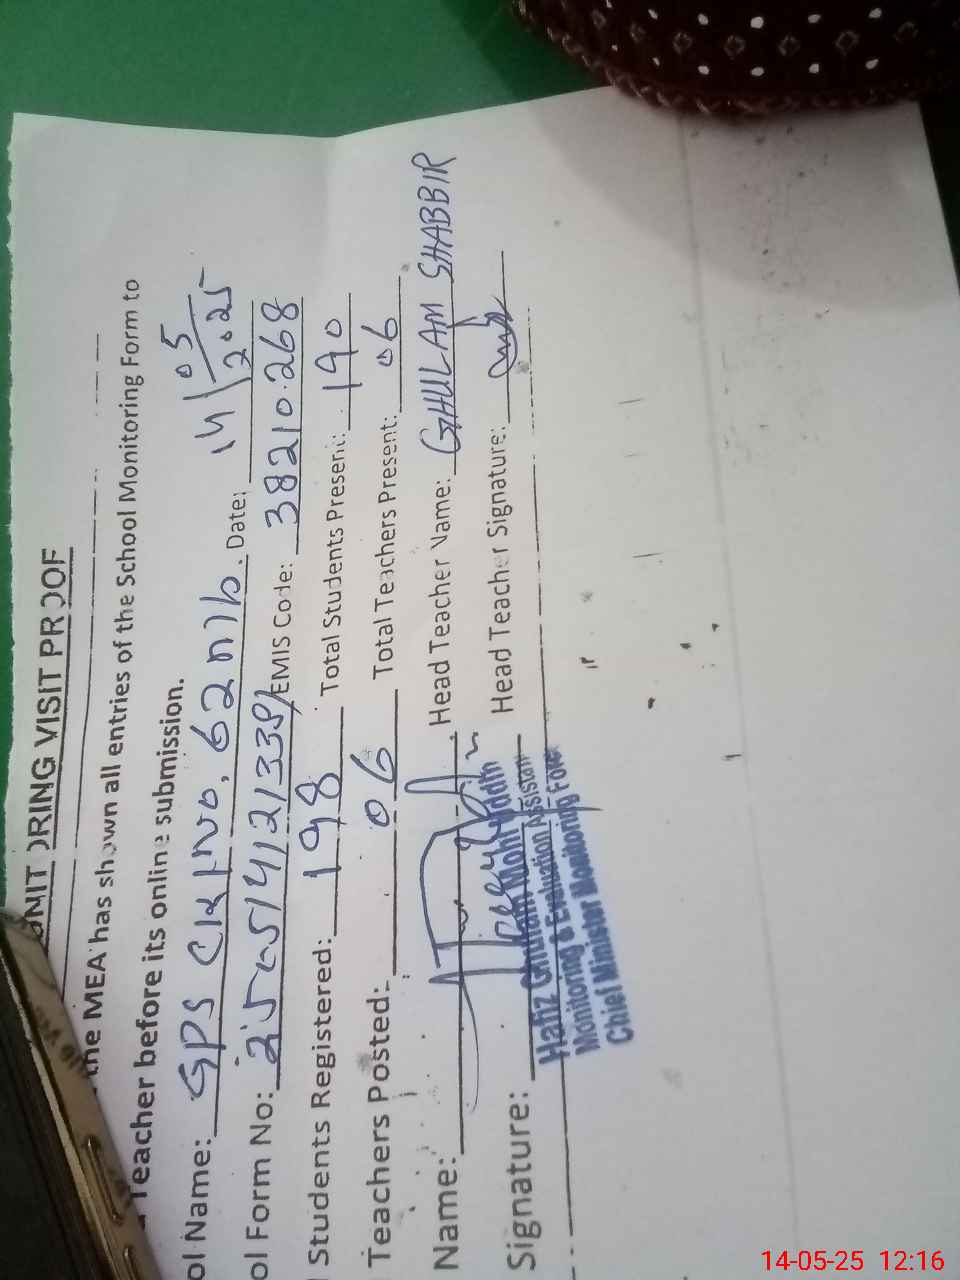 MONITORING VISIT PROOF
the MEA has shown all entries of the School Monitoring Form to
Teacher before its online submission.
ol Name: GPS Ck No. 62 n/b. Date: 14/05/2025
ol Form No: EMIS Code: 38210268
Students Registered: 198 Total Students Present: 190
Teachers Posted: 06 Total Teachers Present: 06
Name: Head Teacher Name: GHULAM SHABBIR
Signature: Head Teacher Signature:
Hafiz Ghulam Mohi Uddin
Monitoring & Evaluation Assistant
Chief Minister Monitoring Force
14-05-25 12:16